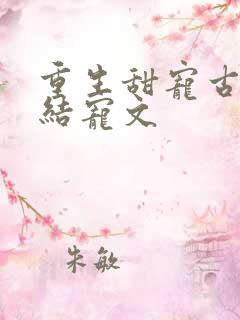 重生甜寵古
結寵文
朱敏